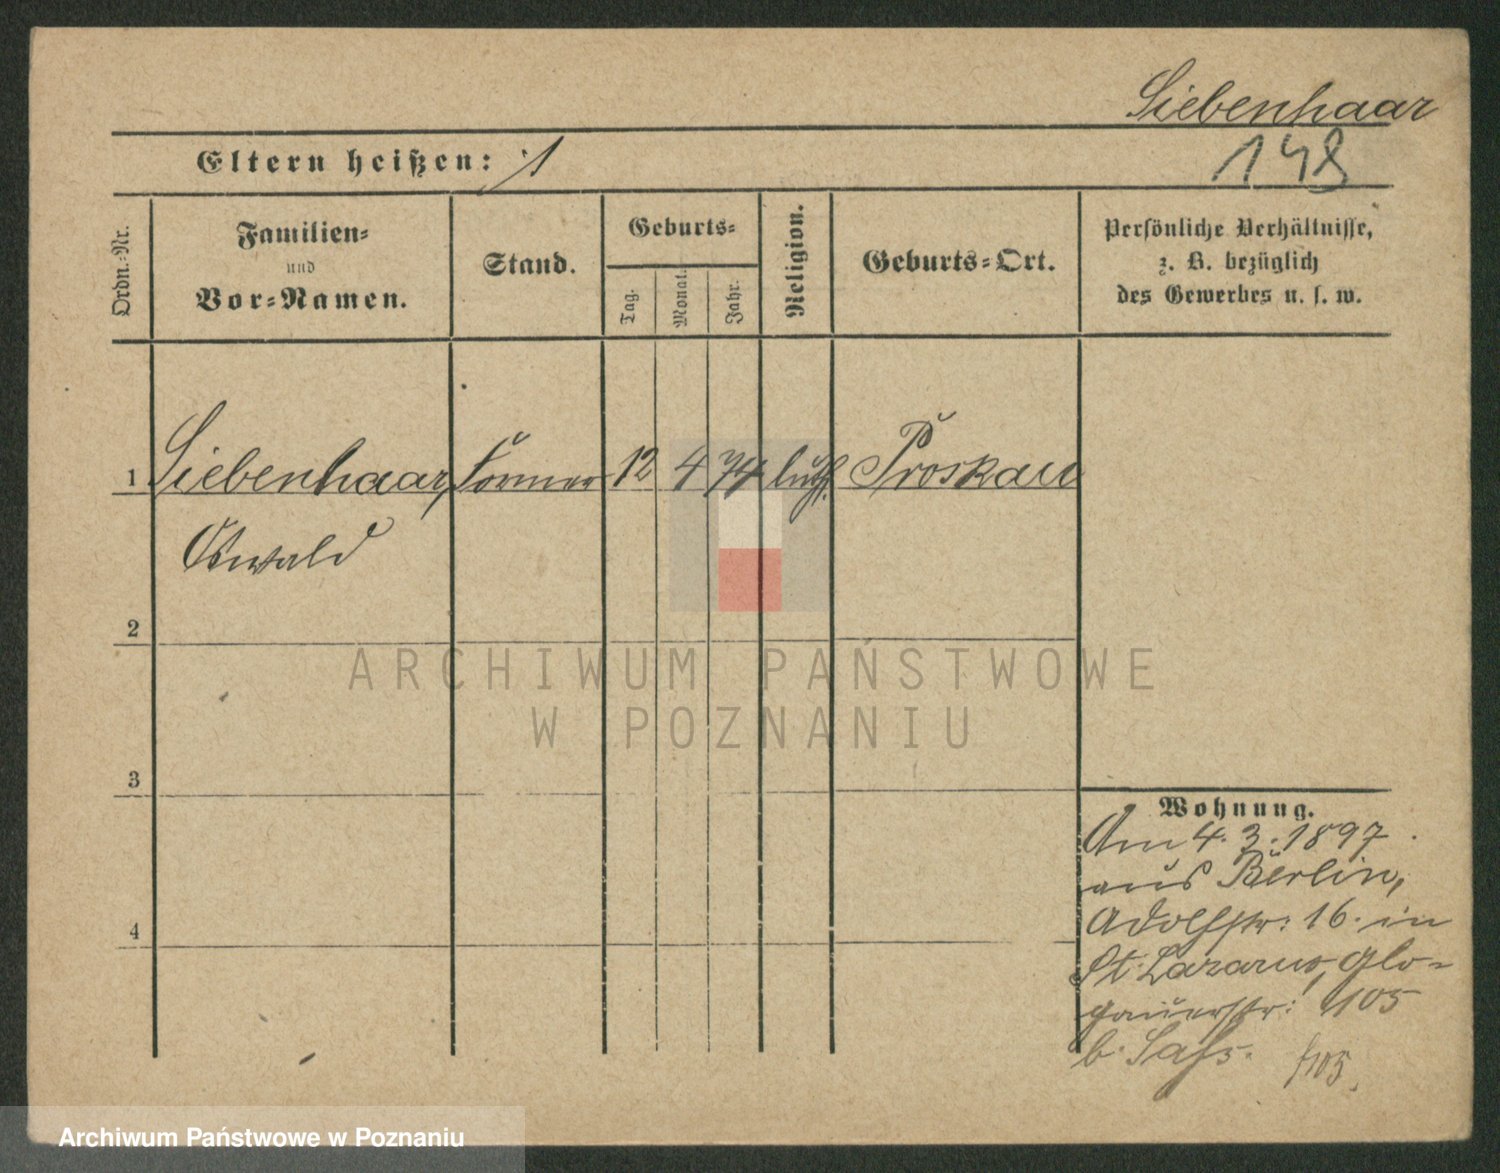 Siebenhaar
Eltern heißen: 1
148
Ordn.-Nr.
Familien-
und
Vor-Namen.
Stand.
Geburts-
Tag.
Monat.
Jahr.
Religion.
Geburts-Ort.
Persönliche Verhältnisse,
z. B. bezüglich
des Gewerbes u. s. w.
1 Siebenhaar, Former 12 4 74 luth. Proskau
Oswald
2
ARCHIWUM PAŃSTWOWE
W POZNANIU
3
Wohnung.
Am 4. 3. 1897
aus Berlin,
4
Adolfstr: 16. in
St. Lazarus, Glo-
gauerstr: 105
b. Sass. 105.
Archiwum Państwowe w Poznaniu